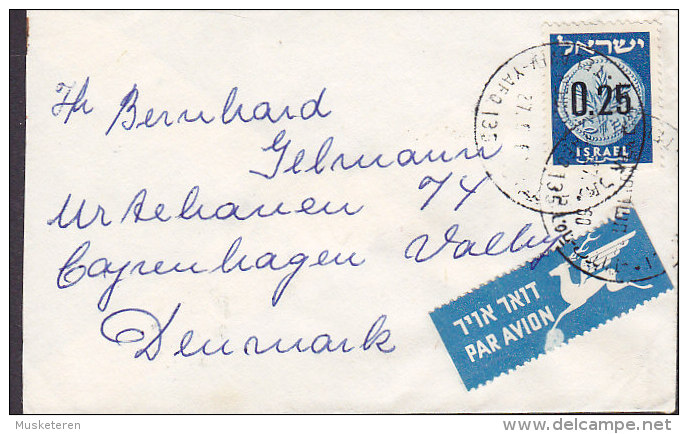 Hr Bernhard
Gelmann
Urtehaven 74
Copenhagen Valby
Denmark
ישראל
0.25
ISRAEL
YAFO 133
דואר אויר
PAR AVION
Musketeren
delcampe.net